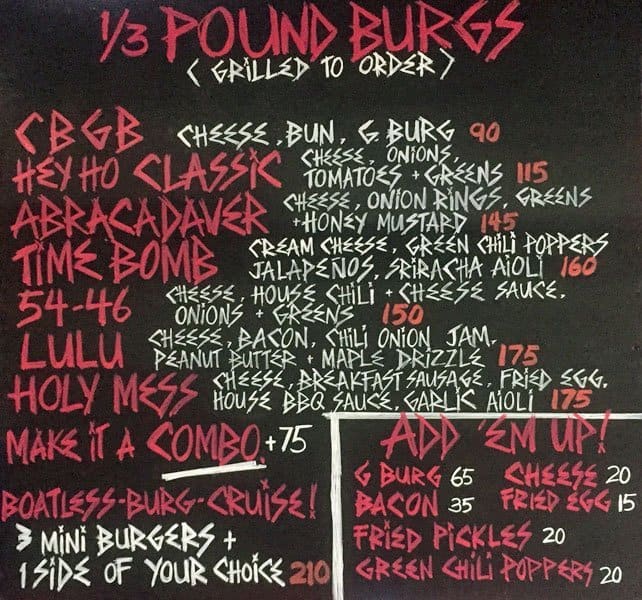 1/3 POUND BURGS
(GRILLED TO ORDER)
CBGB CHEESE, BUN, G. BURG 90
HEY HO CLASSIC CHEESE, ONIONS, TOMATOES + GREENS 115
ABRACADAVER CHEESE, ONION RINGS, GREENS +HONEY MUSTARD 145
TIME BOMB CREAM CHEESE, GREEN CHILI POPPERS JALAPEÑOS, SRIRACHA AIOLI 160
54-46 CHEESE, HOUSE CHILI + CHEESE SAUCE, ONIONS + GREENS 150
LULU CHEESE, BACON, CHILI ONION JAM, PEANUT BUTTER + MAPLE DRIZZLE 175
HOLY MESS CHEESE, BREAKFAST SAUSAGE, FRIED EGG, HOUSE BBQ SAUCE, GARLIC AIOLI 175
MAKE IT A COMBO +75
BOATLESS-BURG-CRUISE!
3 MINI BURGERS +
1 SIDE OF YOUR CHOICE 210
ADD 'EM UP!
G BURG 65 CHEESE 20
BACON 35 FRIED EGG 15
FRIED PICKLES 20
GREEN CHILI POPPERS 20